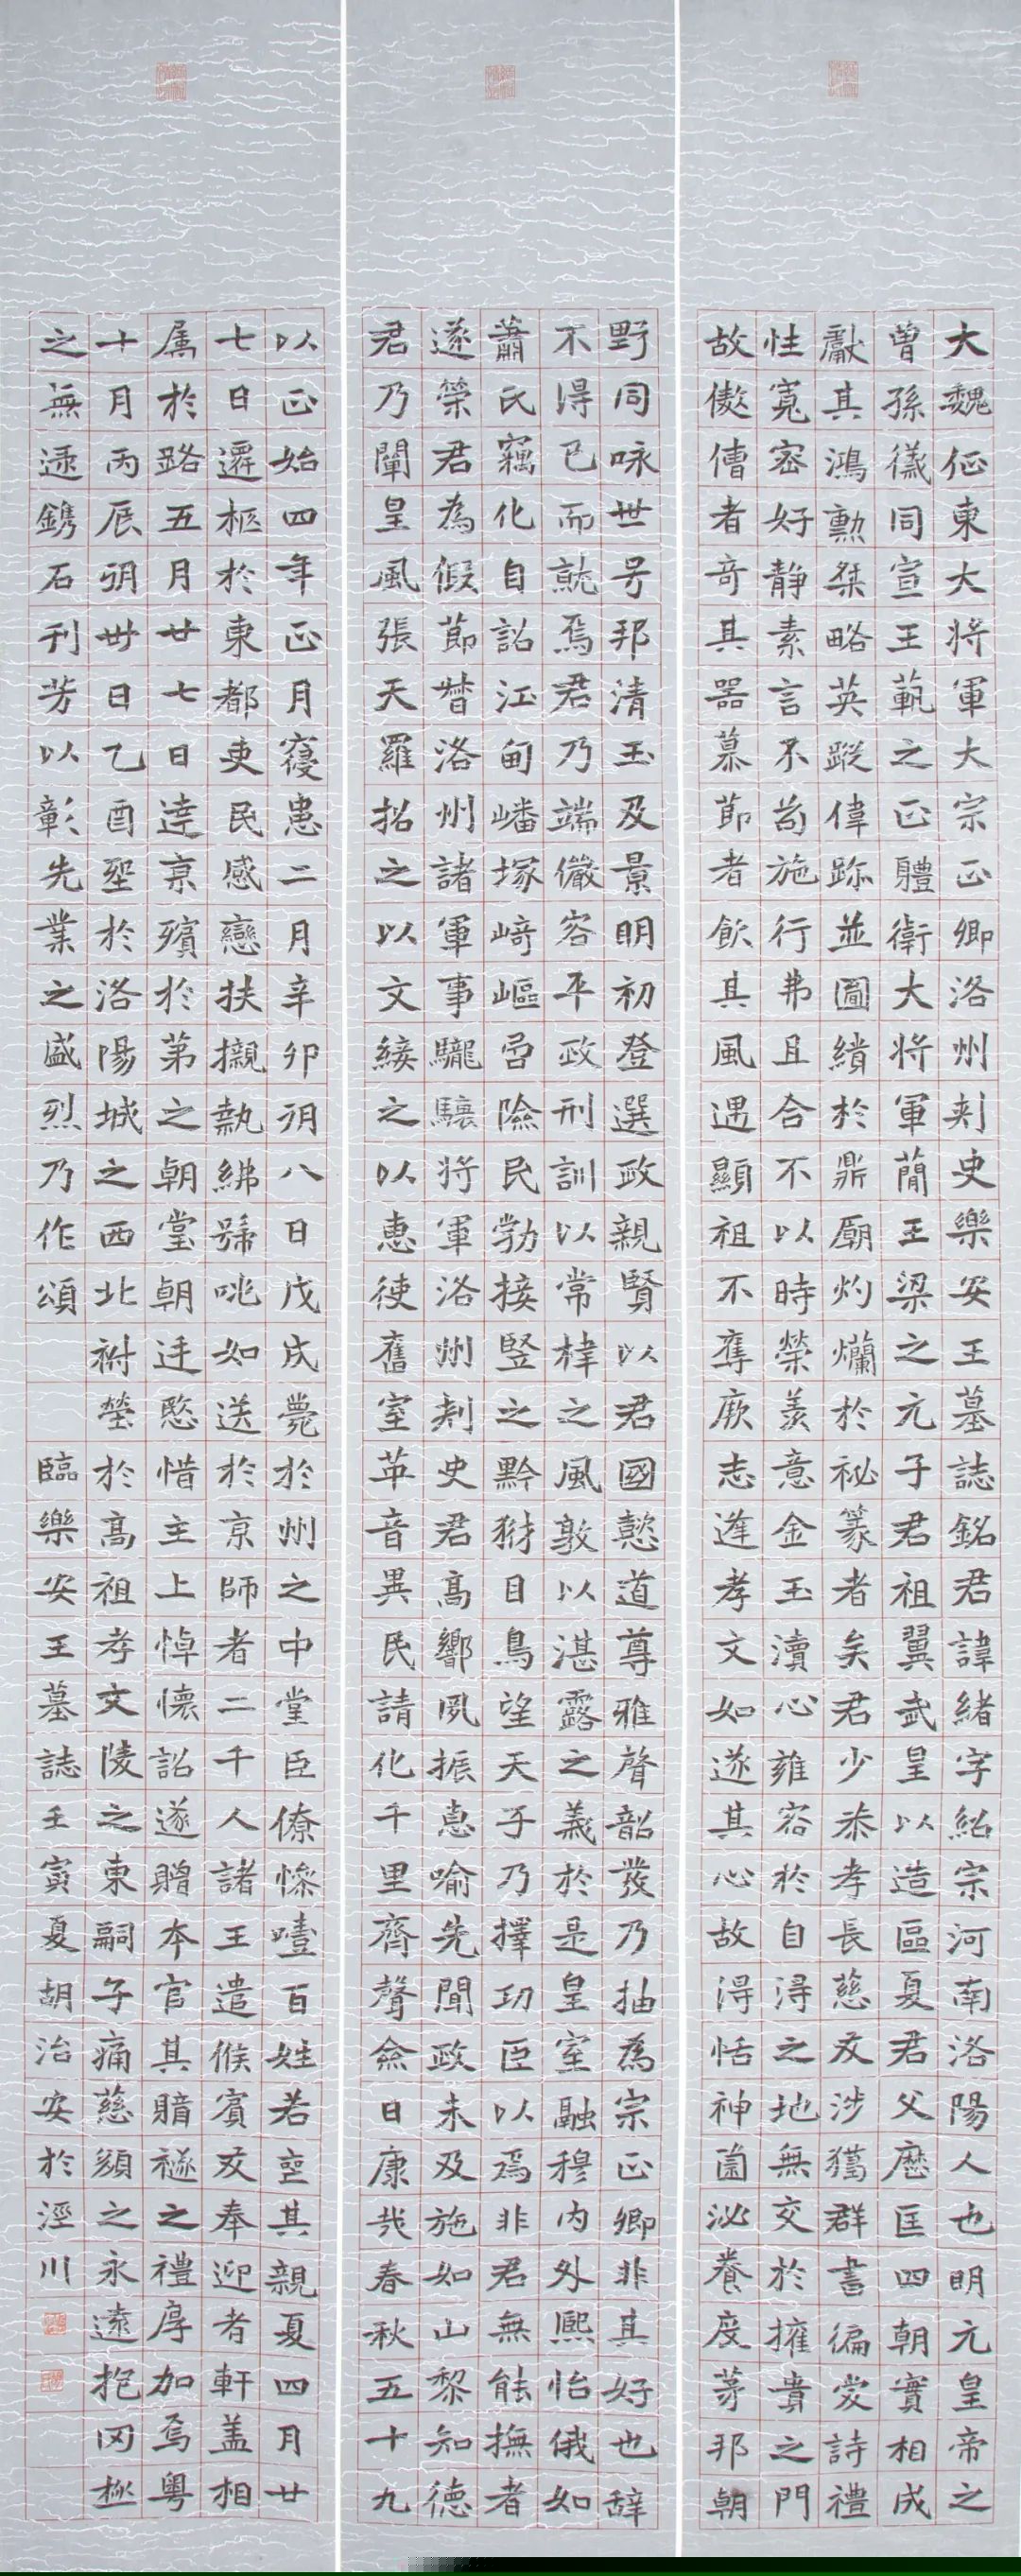 大魏征東大將軍大宗正卿洛州刺史樂安王墓誌銘君諱緒字紹宗河南洛陽人也明元皇帝之
曾孫儀同宣王範之正體衛大將軍簡王梁之元子君祖翼武皇以造區夏君父歷匡四朝實相成
獻其鴻勳桀略英蹤偉跡並圖績於鼎廟灼爛於祕篆者矣君少恭孝長慈友涉獵群書徧愛詩禮
性寬密好靜素言不苟施行弗且合不以時榮羨意金玉瀆心雍容於自得之地無交於擁貴之門
故傲僧者奇其器慕節者飲其風遇顯祖不奪厥志逢孝文如遂其心故得恬神園泌養度茅邦朝
野同咏世号邦清王及景明初登選政親賢以君國懿道尊雅聲韶發乃抽為宗正卿非其好也辞
不得已而就焉君乃端儼容平政刑訓以常棣之風敦以湛露之義於是皇室融穆內外熙怡俄如
蕭氏竊化自詔江甸嶓塚崎嶇召險民勃接豎之黔豺目鳥望天子乃擇功臣以為非君無能撫者
遂榮君為假節督洛州諸軍事驪驤將軍洛州刺史君高響夙振惠喻先聞政未及施如山黎知德
君乃闡皇風張天羅招之以文綏之以惠使舊室革音異民請化千里齊聲僉曰康哉春秋五十九
以正始四年正月寢患二月辛卯朔八日戊戌薨於州之中堂臣僚慘噎百姓若喪其親夏四月廿
七日遷柩於東都吏民感戀扶櫬執紼號咷如送於京師者二千人諸王遣候賓友奉迎者軒蓋相
属於路五月廿七日達京殯於第之朝堂朝廷愍惜主上悼懷詔遂贈本官其賵襚之禮厚加焉粵
十月丙辰朔卅日乙酉堲於洛陽城之西北祔塋於高祖孝文陵之東嗣子痛慈顏之永遠抱罔極
之無逯鐫石刊芳以彰先業之盛烈乃作頌
臨樂安王墓誌壬寅夏胡治安於涇川